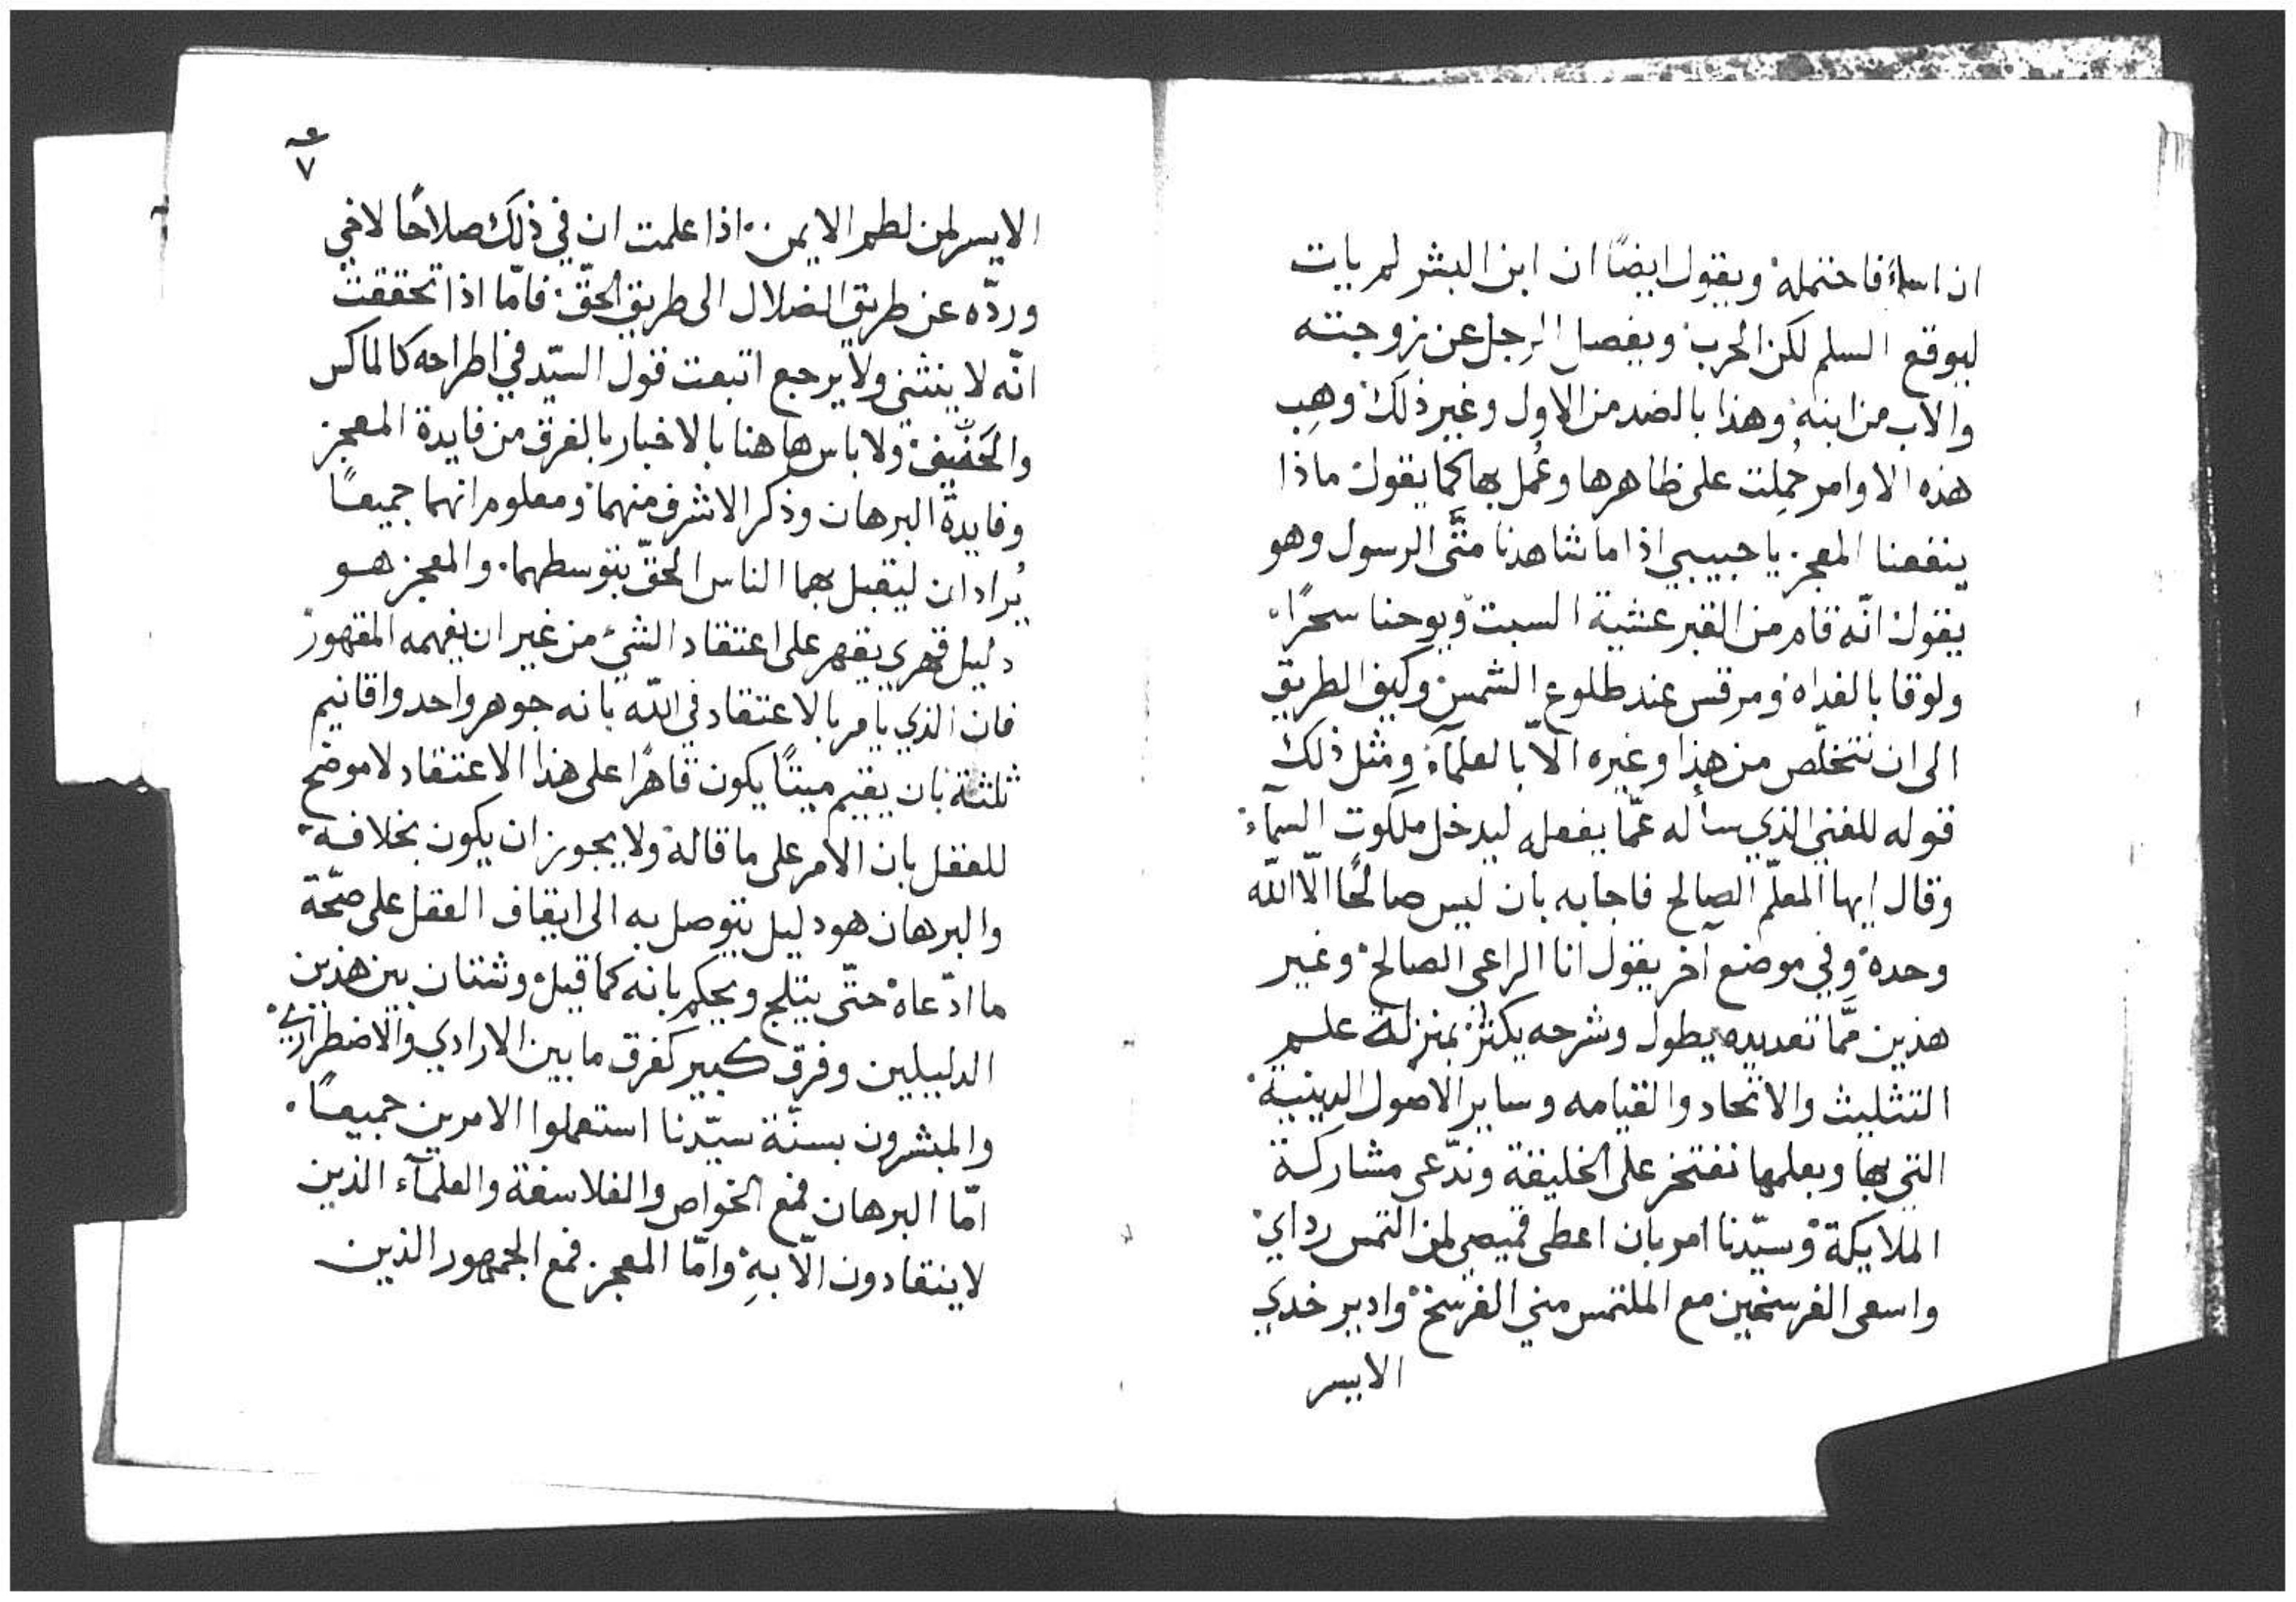 ان اساء فاحتمله ويقول ايضًا ان ابن البشر لم يات
ليوقع السلم لكن الحرب ويفصل الرجل عن زوجته
والاب من ابنه وهذا بالضد من الاول وغير ذلك وهِب
هذه الاوامر حُمِلت على ظاهرها وعُمل بها كما يقول ماذا
ينفعنا المعجز يا حبيبي اذا ما شاهدنا متَّى الرسول وهو
يقول انّه قام من القبر عشية السبت ويوحنا سحرًا
ولوقا بالغداه ومرقس عند طلوع الشمس وكيف الطريق
الى ان نتخلّص من هذا وغيره الّا بالعلمآء ومثل ذلك
قوله للغني الذي سأله عمّا يفعله ليدخل ملكوت السمآء
وقال ايها المعلّم الصالح فاجابه بان ليس صالحًا الّا الله
وحده وفي موضع آخر يقول انا الراعي الصالح وغير
هذين ممَّا تعديده يطول وشرحه يكثر بمنزلة علم
التثليث والاتحاد والقيامه وساير الاصول الدينية
التي بها وبعلمها نفتخر على الخليقة وندّعى مشاركة
الملايكة وسيّدنا امر بان اعطى قميصي لمن التمس رداي
واسعى الفرسخين مع الملتمس مني الفرسخ وادير خدي
الايسر
٧
الايسر لمن لطم الايمن اذا علمت ان في ذلك صلاحًا لاخي
وردّه عن طريق الضلال الى طريق الحقّ فامّا اذا تحققت
انّه لا ينثني ولا يرجع اتبعت قول السيّد في اطراحه كالماكس
والحنيف ولا باس هاهنا بالاخبار بالفرق من فايدة المعجز
وفايدة البرهان وذكر الاشرف منهما ومعلوم انهما جميعًا
يُرادان ليقبل بهما الناس الحقّ بتوسطهما والمعجز هو
دليل قهري يقهر على اعتقاد الشئ من غير ان يفهمه المقهور
فان الذي يامر بالاعتقاد في الله بانه جوهر واحد واقانيم
ثلثة بان يقيم ميتًا يكون قاهرًا على هذا الاعتقاد لا موضح
للعقل بان الامر على ما قاله ولا يجوز ان يكون بخلافه
والبرهان هو دليل يتوصل به الى ايقاف العقل على صحّة
ما ادّعاه حتّى يثلج ويحكم بانه كما قيل وشتان بين هذين
الدليلين وفرق كبير كفرق ما بين الارادي والاضطراري
والمبشرون بسنّة سيّدنا استعملوا الامرين جميعًا
امّا البرهان فمع الخواص والفلاسفة والعلمآء الذين
لا ينقادون الّا بهِ وامّا المعجز فمع الجمهور الذين